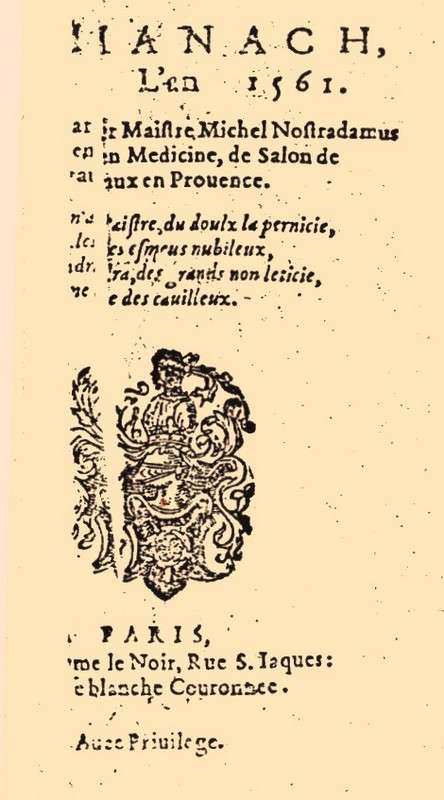 MANACH,
L'en 1561.
ar Maiſtre Michel Noſtradamus
en Medicine, de Salon de
aux en Prouence.
aiſtre, du doulx la pernicie,
es eſmeus nubileux,
ra, des grands non leticie,
e des cauilleux.
A PARIS,
me le Noir, Rue S. Iaques:
e blanche Couronnee.
Auec Priuilege.